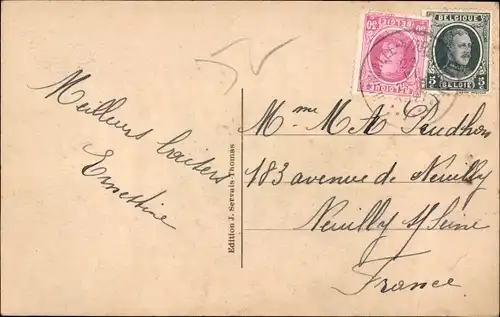 BELGIQUE
5 5
BELGIË
BELGIE
BELGIQUE
Meilleurs baisers
Ernestine
Edition J. Servais-Thomas
Mme M A Prudhon
183 avenue de Neuilly
Neuilly s/ Seine
France